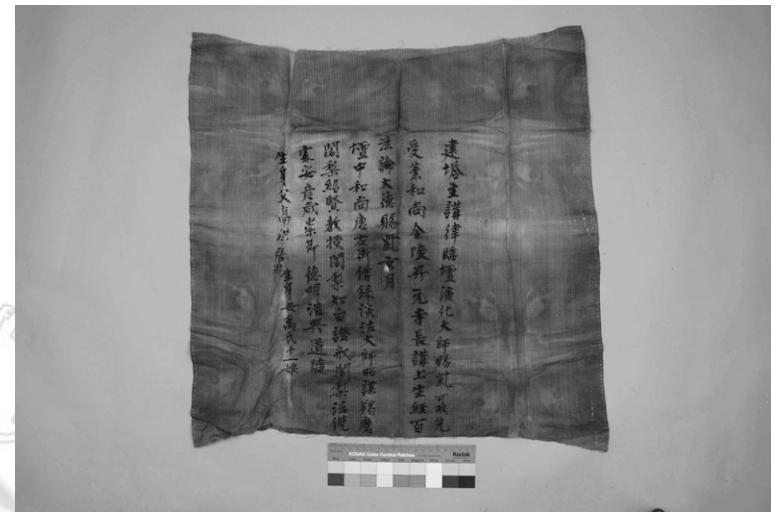 建塔主講律臨壇演化大師賜紫可政先
受業和尚金陵昇元寺長講上生經百
法論大德賜紫雲月
壇中和尚唐右街僧錄演法大師昭謀羯磨
闍梨紹賢教授闍梨知白證戒闍梨法倪
審安彥威崇節德明浩興道隨
生身父高洪 生身母萬氏十一娘
KODAK Color Control Patches
Kodak